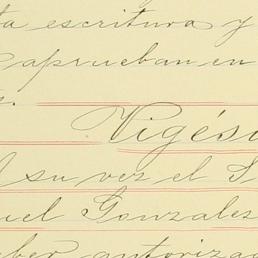 ta escritura y
aprueban en
Vigési
A su vez el S
uel Gonzales
ber autoriza